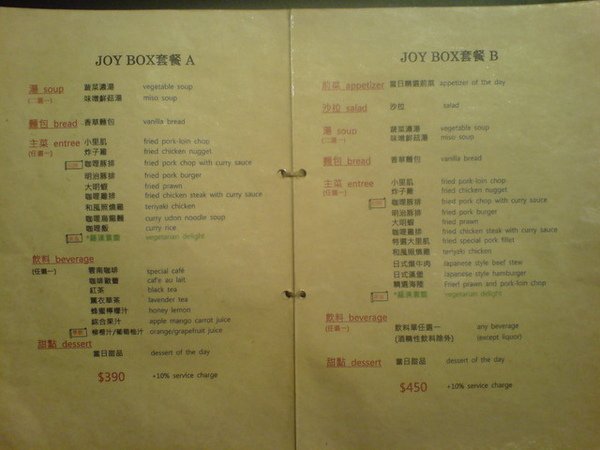 JOY BOX套餐 A
湯 soup 蔬菜濃湯 vegetable soup
(二選一) 味噌鮮菇湯 miso soup
麵包 bread 香草麵包 vanilla bread
主菜 entree 小里肌 fried pork-loin chop
(任選一) 炸子雞 fried chicken nugget
咖哩豚排 fried pork chop with curry sauce
明治豚排 fried pork burger
大明蝦 fried prawn
咖哩雞排 fried chicken steak with curry sauce
和風照燒雞 teriyaki chicken
咖哩烏龍麵 curry udon noodle soup
咖哩飯 curry rice
vegetarian delight
飲料 beverage
(任選一) 雲南咖啡 special café
咖啡歐蕾 cafe au lait
紅茶 black tea
薰衣草茶 lavender tea
蜂蜜檸檬汁 honey lemon
綜合果汁 apple mango carrot juice
柳橙汁/葡萄柚汁 orange/grapefruit juice
甜點 dessert
當日甜品 dessert of the day
$390 +10% service charge
JOY BOX套餐 B
前菜 appetizer 當日精選前菜 appetizer of the day
沙拉 salad 沙拉 salad
湯 soup 蔬菜濃湯 vegetable soup
(二選一) 味噌鮮菇湯 miso soup
麵包 bread 香草麵包 vanilla bread
主菜 entree 小里肌 fried pork-loin chop
(任選一) 炸子雞 fried chicken nugget
咖哩豚排 fried pork chop with curry sauce
明治豚排 fried pork burger
大明蝦 fried prawn
咖哩雞排 fried chicken steak with curry sauce
特選大里肌 fried special pork fillet
和風照燒雞 teriyaki chicken
日式燉牛肉 Japanese style beef stew
日式漢堡 Japanese style hamburger
精選海陸 Fried prawn and pork-loin chop
vegetarian delight
飲料 beverage
(任選一) 飲料單任選一 any beverage
(酒精性飲料除外) (except liquor)
甜點 dessert 當日甜品 dessert of the day
$450 +10% service charge